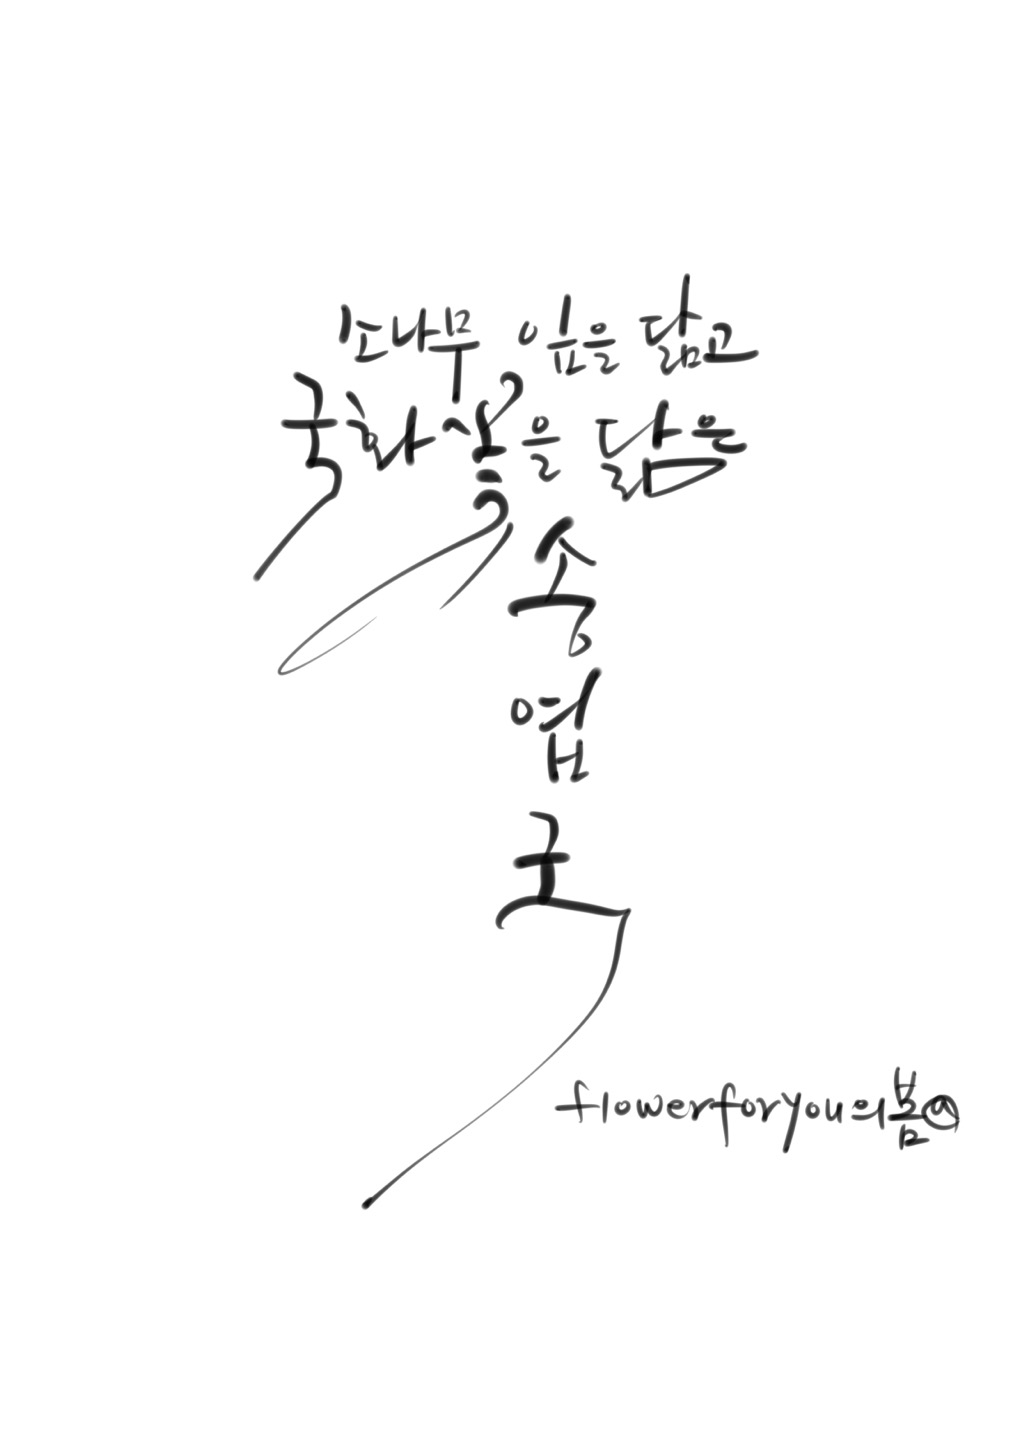 소나무 잎을 닮고
국화 꽃을 닮은
송
엽
국
flowerforyou의봄@